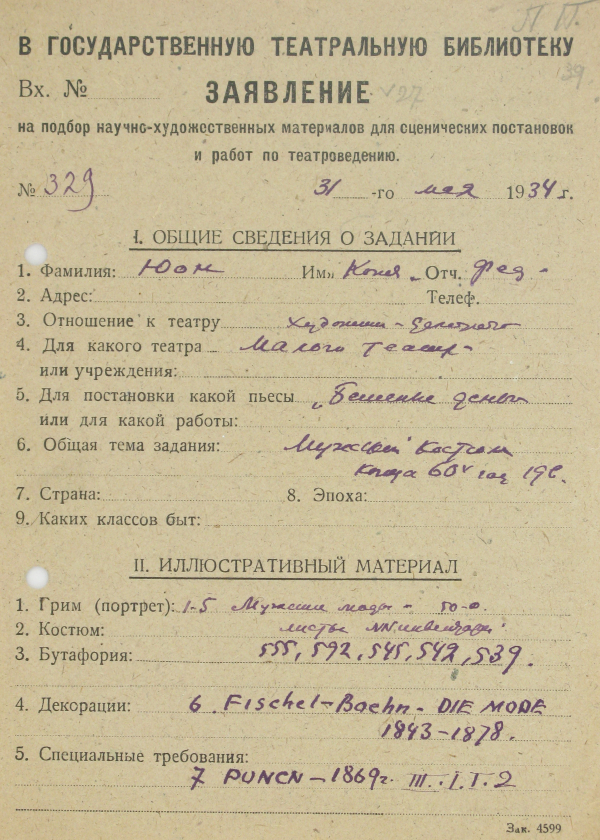 П П.
39
В ГОСУДАРСТВЕННУЮ ТЕАТРАЛЬНУЮ БИБЛИОТЕКУ
Вх. № ЗАЯВЛЕНИЕ 27
на подбор научно-художественных материалов для сценических постановок
и работ по театроведению.
№ 329 31 -го мая 1934 г.
I. ОБЩИЕ СВЕДЕНИЯ О ЗАДАНИИ
1. Фамилия: Юон Имя Конст. Отч. Фед-
2. Адрес: Телеф.
3. Отношение к театру художник-
4. Для какого театра Малого театр-
или учреждения:
5. Для постановки какой пьесы „Бешеные деньги
или для какой работы:
6. Общая тема задания: Мужской костюм
конца 60х год 19в.
7. Страна: 8. Эпоха:
9. Каких классов быт:
II. ИЛЛЮСТРАТИВНЫЙ МАТЕРИАЛ
1. Грим (портрет): 1-5 Мужские моды - 50-
2. Костюм: листы NN инвентари
3. Бутафория: 555, 592, 545, 542, 539.
4. Декорации: 6. Fischel-Boehn- DIE MODE
1843-1878.
5. Специальные требования:
7 PUNCH-1869г. III. I. I. 2
Зак. 4599